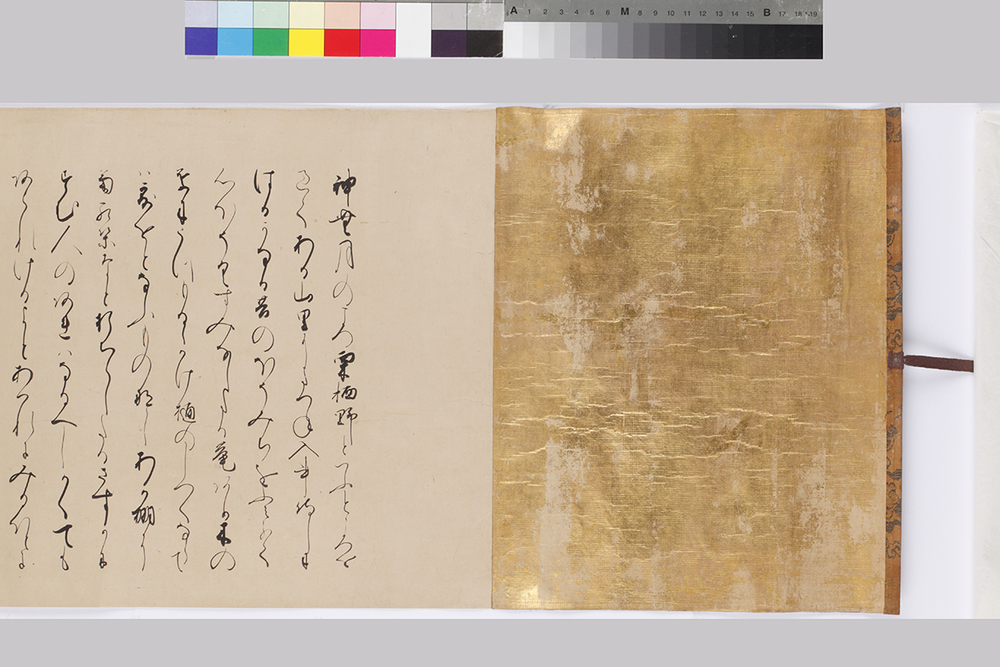 A 1 2 3 4 5 6 M 8 9 10 11 12 13 14 15 B 17 18 19
神無月のころ栗栖野といふところを
すきてある山里にたつね入事侍しに
はるかなる苔のほそみちをふみわけて
心ほそくすみなしたる庵あり木の
葉にうつもるゝかけ樋のしつくならて
は露をとなふものなしあか棚に
菊紅葉なと折ちらしたるさすかに
すむ人のあれはなるへしかくても
あられけるよとあはれにみるほとに